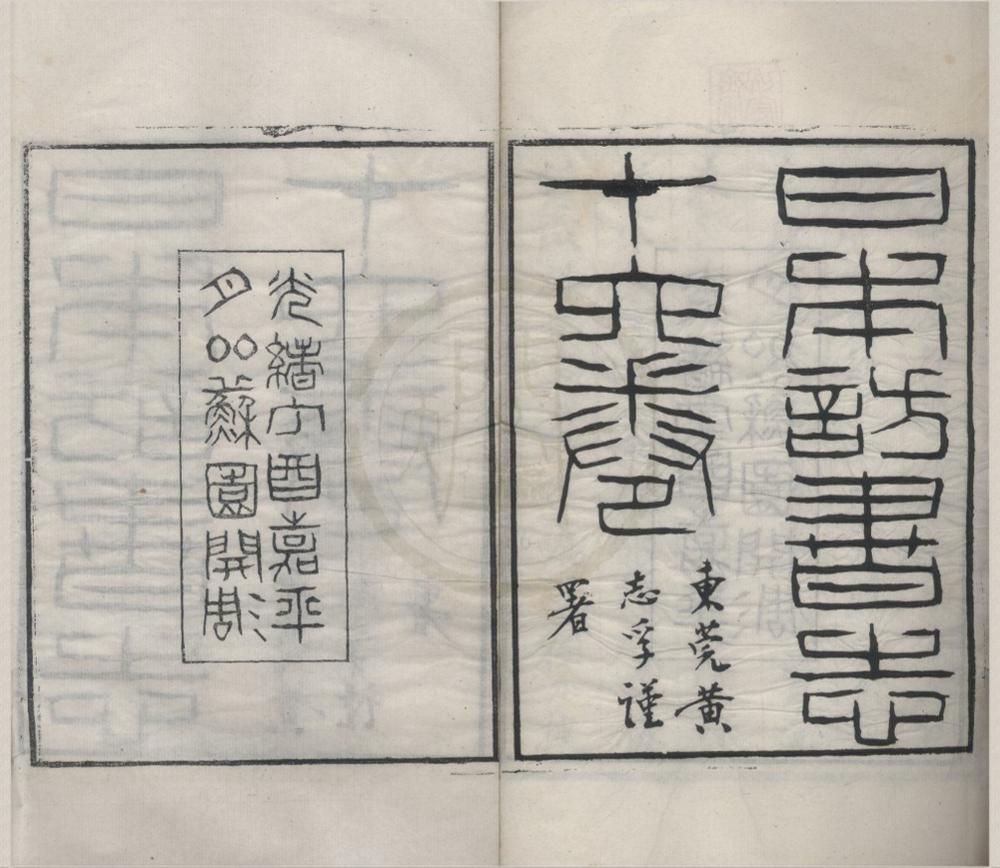 日本訪書志
十六卷
東莞黃
志孚謹
署
光緒丁酉嘉平
月鄰蘇園開彫